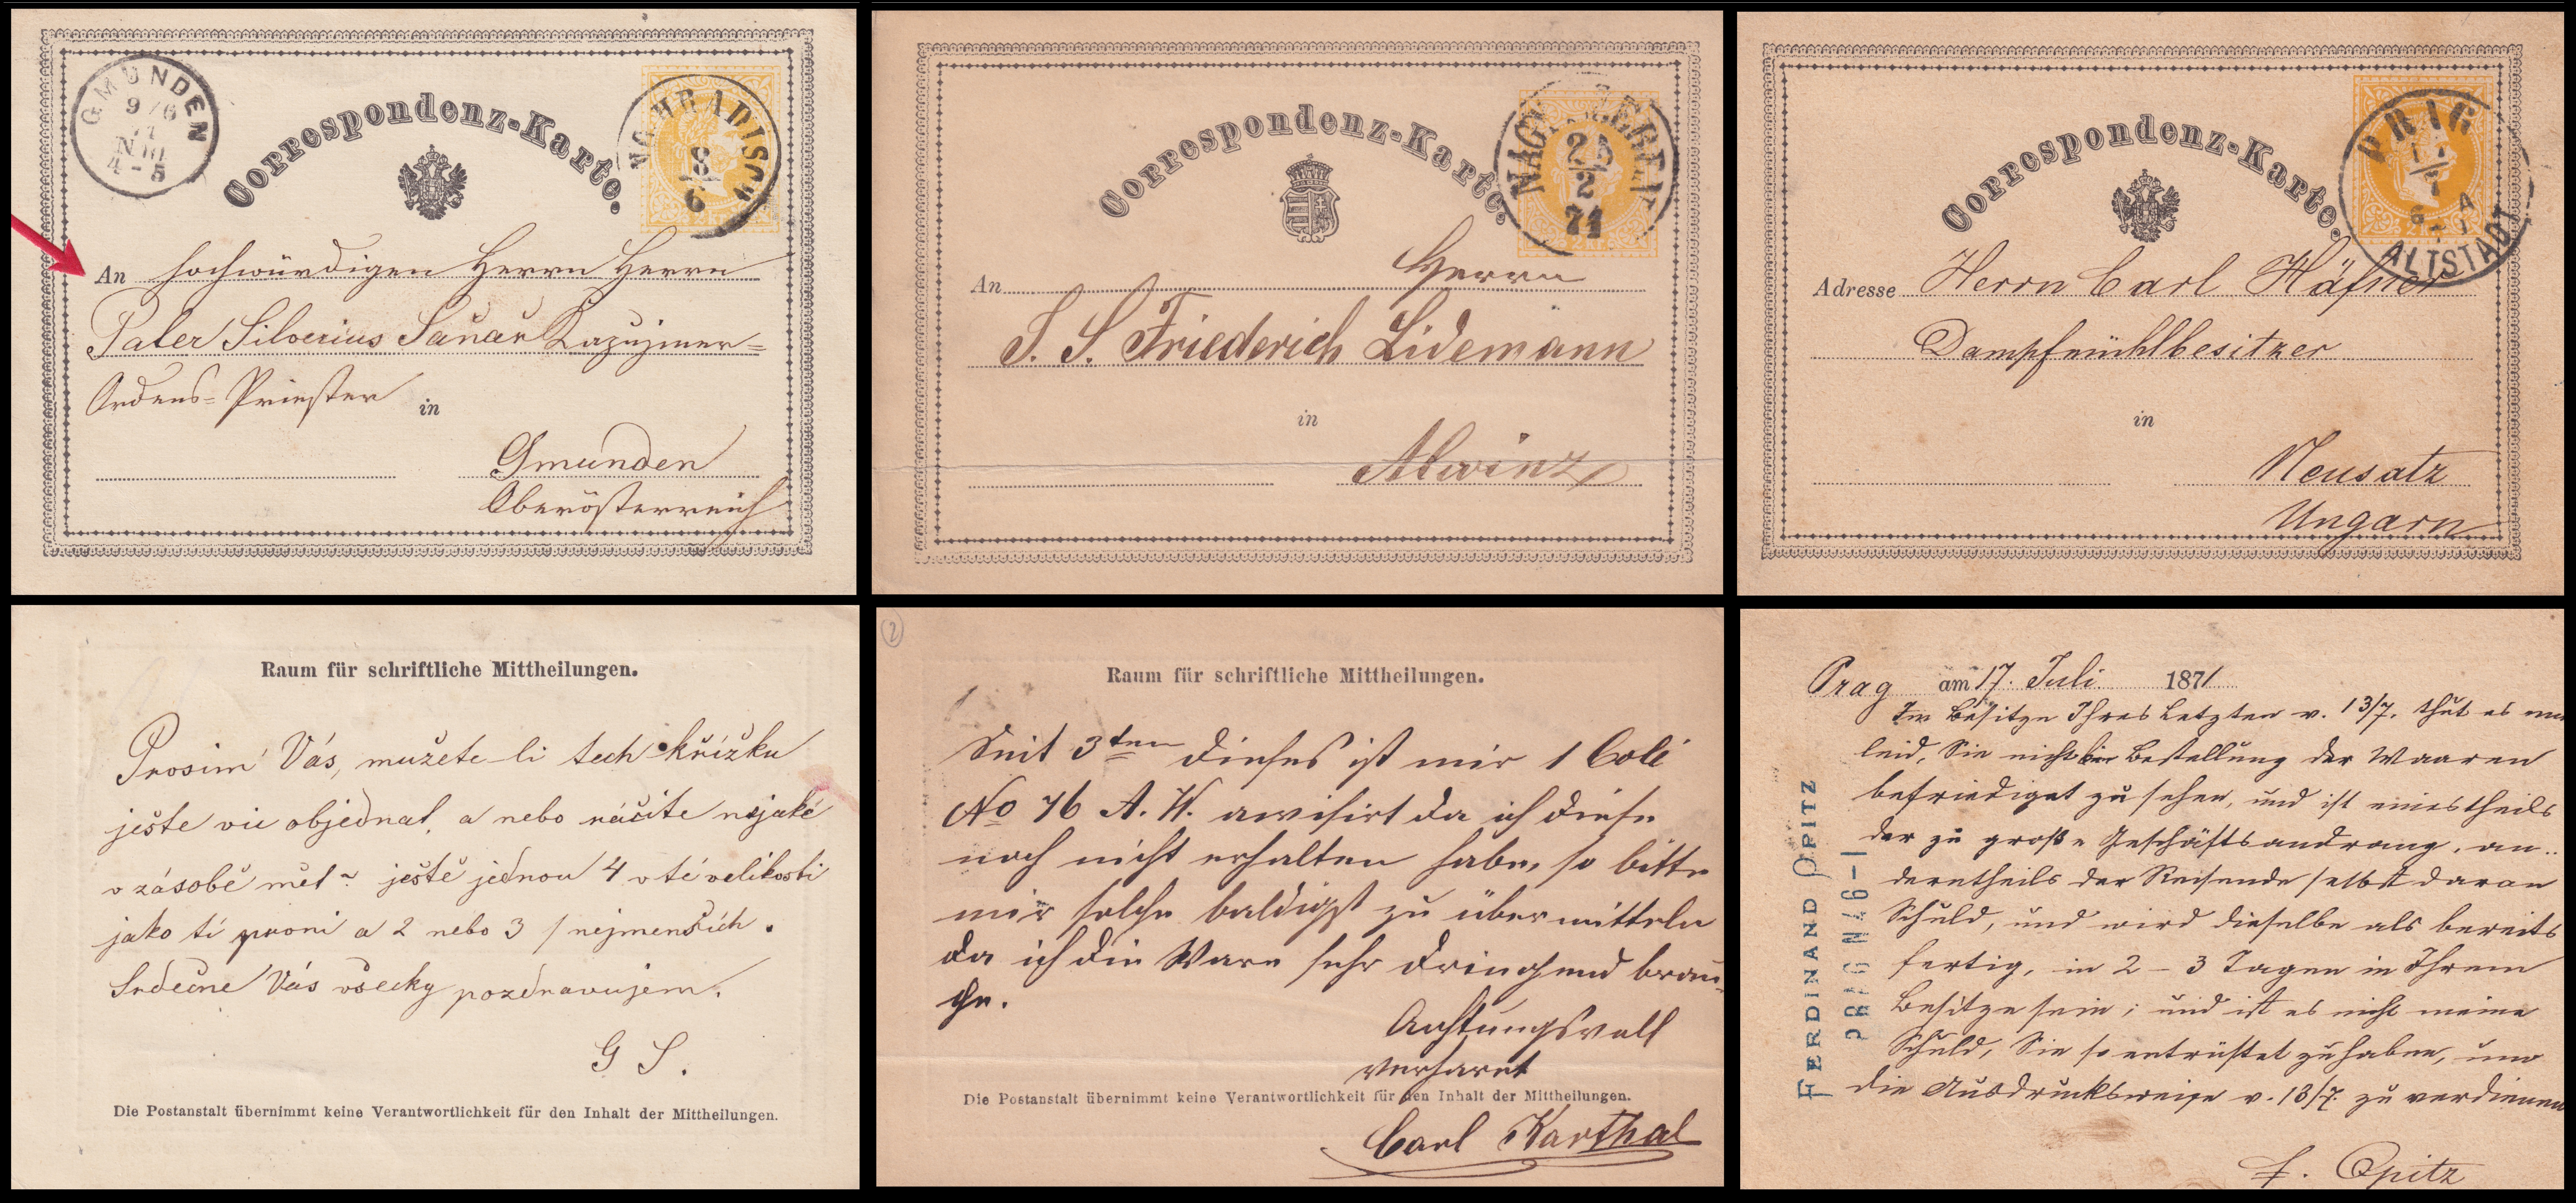 GMUNDEN
9/6
4-5
UNG. HRADISCH
8
6
Correspondenz-Karte.
An hochwürdigen Herrn Herrn
Pater Silverius Kapuziner=
Ordens=Priester in
Gmunden
Oberösterreich
Raum für schriftliche Mittheilungen.
Prosim Vás, mužete-li tech křížku
ješte vic objednat, a nebo ráčite nejaké
v zásobě mět ~ ještě jednou 4 v té velikosti
jako ti prvni a 2 nebo 3 / nejmenších.
Srdečne Vás všecky pozdravujem.
G S.
Die Postanstalt übernimmt keine Verantwortlichkeit für den Inhalt der Mittheilungen.
Correspondenz-Karte.
2
71
2 kr.
An Herrn
J. S. Friederich Lidemann
in
Alwinz
2
Raum für schriftliche Mittheilungen.
Seit 3ten dieses ist mir 1 Coli
No 76 A. H. awisirt da ich diese
noch nicht erhalten habe, so bitte
mir solche baldigst zu übermitteln
da ich die Ware sehr dringend brau-
che.
Achtungsvoll
verharrt
Die Postanstalt übernimmt keine Verantwortlichkeit für den Inhalt der Mittheilungen.
Carl Karthal
Correspondenz-Karte.
PRAG
17
7
6 A
ALTSTADT
2 kr.
Adresse Herrn Carl Häfner
Dampfmühlbesitzer
in
Neusatz
Ungarn
Prag am 17. Juli 1871
Im Besitze Ihres Letzten v. 13/7. thut es
leid, Sie nicht Bestellung der Waaren
befriedigt zu sehen, und ist einestheils
der zu große Geschäftsandrang, an..
derntheils der Reisende selbst daran
Schuld, und wird dieselbe als bereits
fertig, in 2 - 3 Tagen in Ihrem
Besitze sein; und ist es nicht meine
Schuld, Sie so entrüstet zu haben, um
die Ausdrucksweise v. 13/7. zu verdienen
F. Opitz
FERDINAND OPITZ
PRAG N 746-I